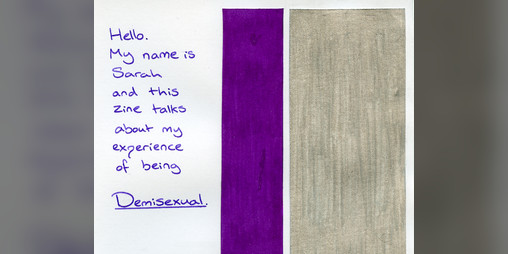 Hello.
My name is
Sarah
and this
zine talks
about my
experience
of being
Demisexual.